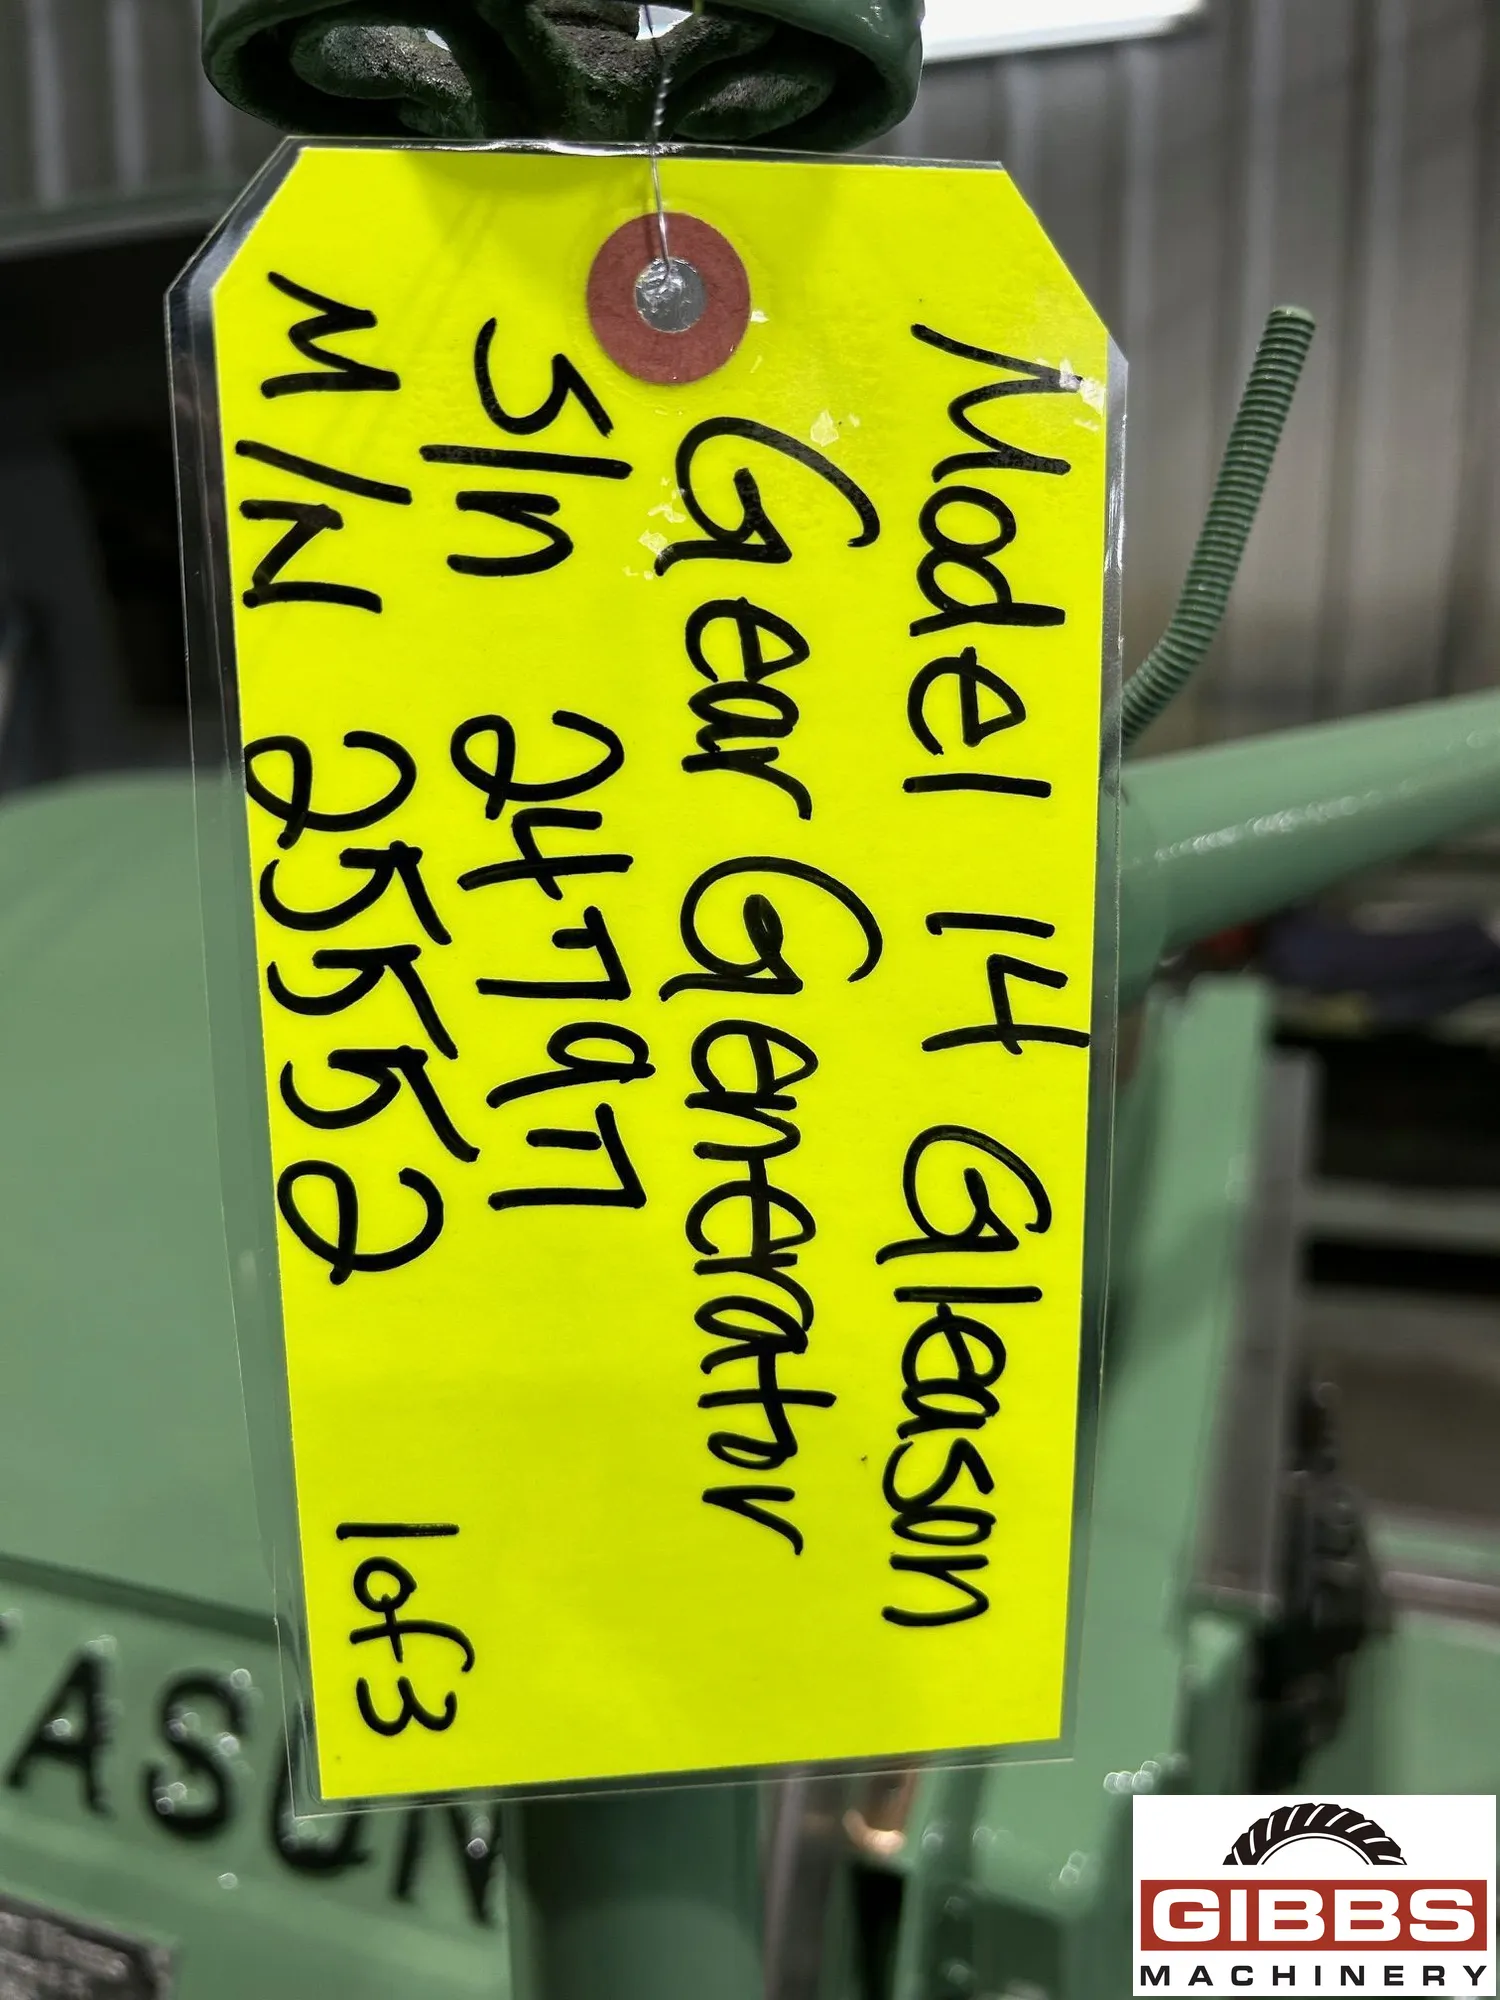 Model 14 Gleason
Gear Generator
S/n 24797
M/N 25552
1 of 3
EASON
GIBBS
MACHINERY